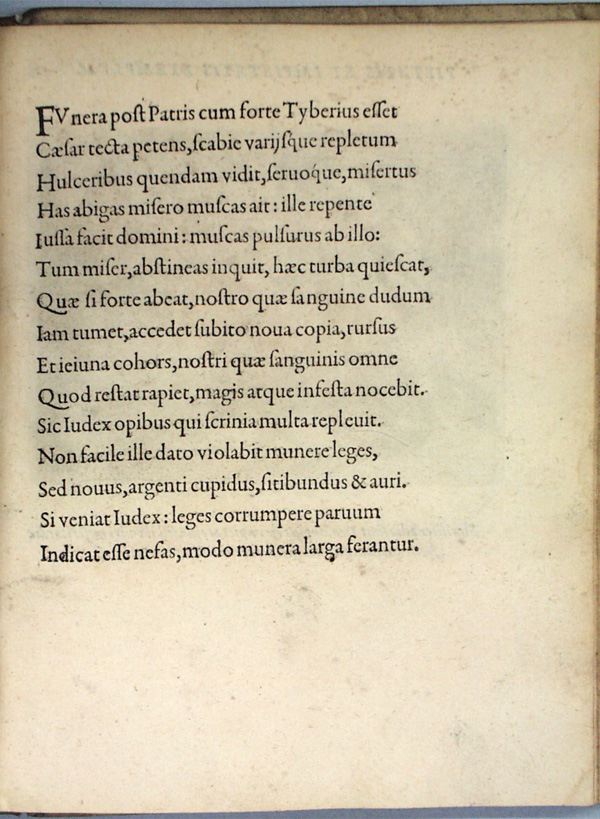 FVnera poſt Patris cum forte Tyberius eſſet
Cæſar tecta petens, ſcabie varijſque repletum
Hulceribus quendam vidit, ſeruoq́ue, miſertus
Has abigas miſero muſcas ait: ille repente
Iuſſa facit domini: muſcas pulſurus ab illo:
Tum miſer, abſtineas inquit, hæc turba quieſcat,
Quæ ſi forte abeat, noſtro quæ ſanguine dudum
Iam tumet, accedet ſubito noua copia, rurſus
Et ieiuna cohors, noſtri quæ ſanguinis omne
Quod reſtat rapiet, magis atque infeſta nocebit.
Sic Iudex opibus qui ſcrinia multa repleuit.
Non facile ille dato violabit munere leges,
Sed nouus, argenti cupidus, ſitibundus & auri.
Si veniat Iudex: leges corrumpere paruum
Indicat eſſe nefas, modo munera larga ferantur.